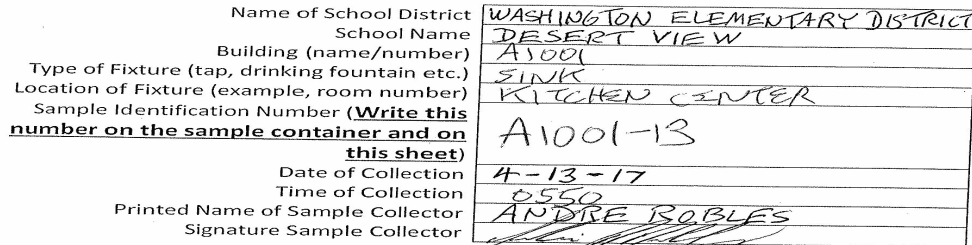 Name of School District WASHINGTON ELEMENTARY DISTRICT
School Name DESERT VIEW
Building (name/number) A1001
Type of Fixture (tap, drinking fountain etc.) SINK
Location of Fixture (example, room number) KITCHEN CENTER
Sample Identification Number (Write this
number on the sample container and on
this sheet) A1001-13
Date of Collection 4-13-17
Time of Collection 0550
Printed Name of Sample Collector ANDRE ROBLES
Signature Sample Collector